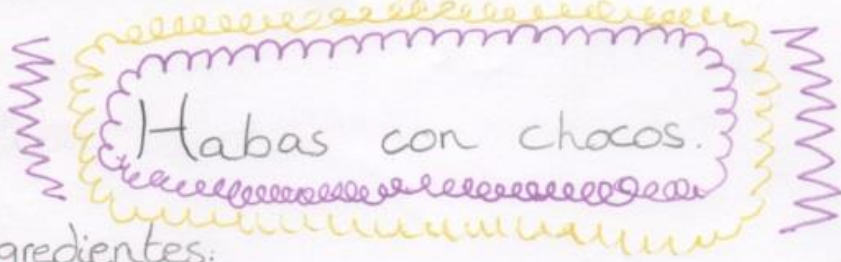 Habas con chocos.
gredientes: